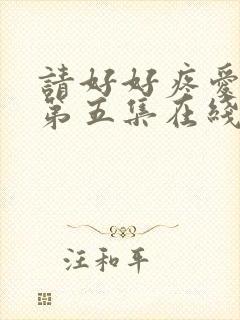 請好好疼愛
第五集在綫
汪和平